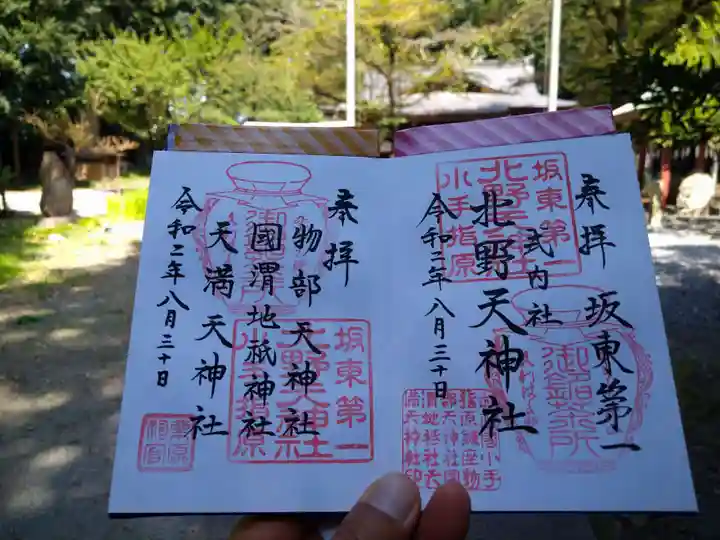 奉拝
坂東第一
式内社
北野天神社
令和二年八月三十日
坂東第一
北野天神社
小手指原
御鎮茶所
奉拝
物部天神社
國渭地祇神社
天満天神社
令和二年八月三十日
坂東第一
北野天神社
小手指原